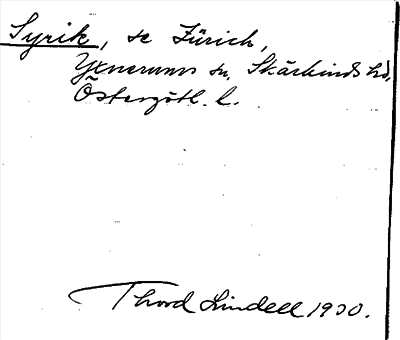 Syrik, se Zürich,
Yxnerums sn. Skärkinds hd,
Östergötl. l.
Thord Lindell 1930.